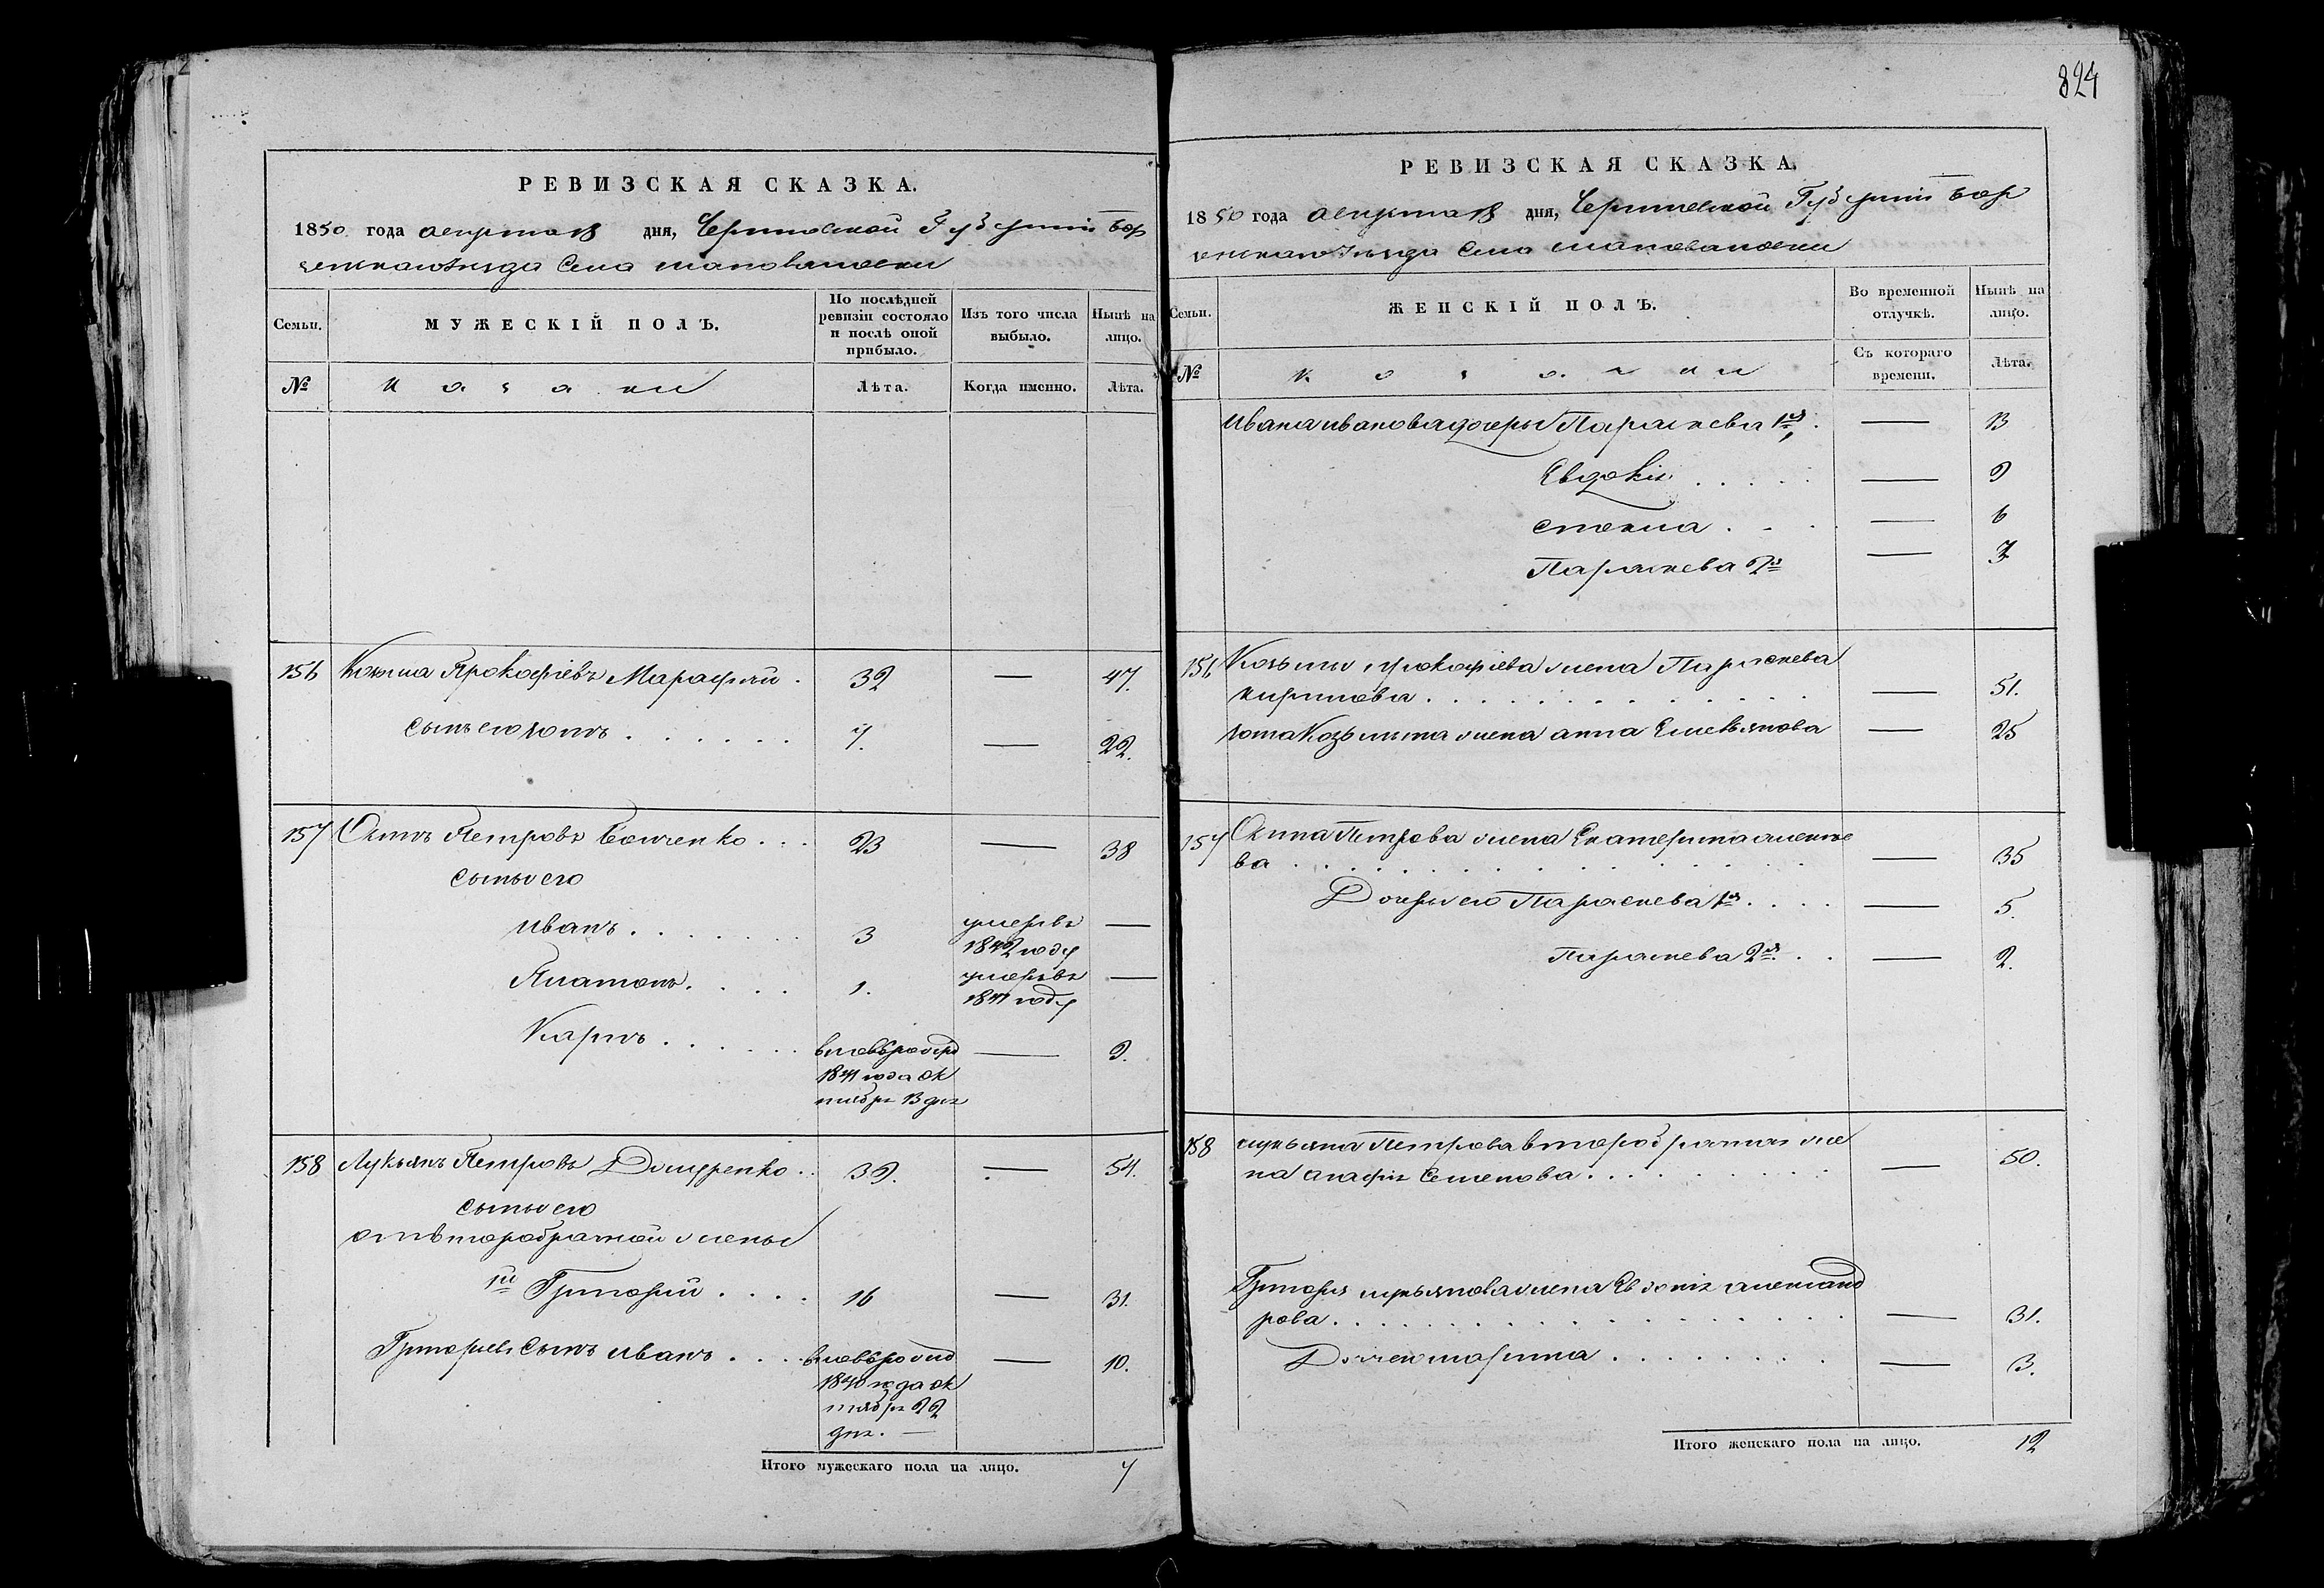 824
РЕВИЗСКАЯ СКАЗКА.
1850 года августа 18 дня, Черниговской Губернии Бор
зенскаго Уезда Села Шаповаловки
Семьи.
МУЖЕСКІЙ ПОЛЪ.
По послѣдней ревизіи состояло и послѣ оной прибыло.
Изъ того числа выбыло.
Нынѣ на лицо.
№
козаки
Лѣта.
Когда именно.
Лѣта.
156 Козьма Прокофіевъ Марафай . 32 — 47.
сынъ его Фотъ . . . . . . 7. — 22.
157 Осипъ Петровъ . . . 23 — 38
сыны его
Иванъ . . . . . . . 3 умеръ въ 1842 году —
Платонъ . . . . 1. умеръ въ 1841 году —
Карпъ . . . . . . вновь рожд 1841 года ок тября 13 дня — 9.
158 Лукьянъ Петровъ . . 39. — 54.
сыны его
отъ второбрачной жены
1й Григорий . . . . 16 — 31.
Григорьевъ сынъ Иванъ . . . вновь рожд 1840 года ок тября 22 дня. — — 10.
Итого мужескаго пола на лицо. 7
РЕВИЗСКАЯ СКАЗКА.
1850 года августа 18 дня, Черниговской Губернии Бор
зенскаго Уезда Села Шаповаловки
Семьи.
ЖЕНСКІЙ ПОЛЪ.
Во временной отлучкѣ.
Нынѣ на лицо.
№
козачки
Съ котораго времени.
Лѣта.
Ивана Иванова дочери Параскева 1я . — 13
Евдокія . . . . . — 9
Стеха . . . — 6
Параскева 2я — 3
156 Козьмы Прокофіева жена Параскева
Кирилова . . . . . . . . . . . . — 51.
Фота Козьмина жена Анна Емельянова — 25
157 Осипа Петрова жена Екатерина Алексее
ва . . . . . . . . . . . . — 35
Дочери его Параскева 1я . . . . — 5.
Параскева 2я . . — 2.
158 Лукьяна Петрова второбрачная же
на Агафія Семенова . . . . . . . . — 50.
Григорія Лукьянова жена Евдокія Александ
рова . . . . . . . . . . . . . . . . — 31.
Дочь его Марина . . . . . . . . — 3.
Итого женскаго пола на лицо. 12